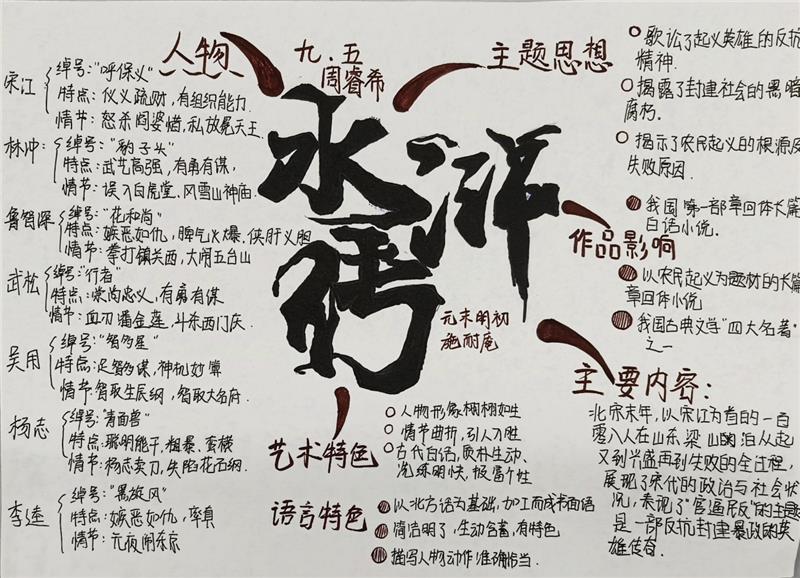 人物
宋江
绰号："呼保义"
特点：仪义疏财，有组织能力.
情节：怒杀阎婆惜，私放晁天王.
林冲：
绰号："豹子头"
特点：武艺高强，有勇有谋，
情节：误入白虎堂、风雪山神庙.
鲁智深
绰号："花和尚"
特点：嫉恶如仇，脾气火爆、侠肝义胆
情节：拳打镇关西，大闹五台山
武松
绰号："行者"
特点：崇尚忠义，有勇有谋
情节：血刃潘金莲，斗杀西门庆.
吴用
绰号："智多星"
特点：足智多谋，神机妙算
情节：智取生辰纲，智取大名府.
杨志
绰号："青面兽"
特点：聪明能干，粗暴、蛮横
情节：杨志卖刀，失陷花石纲.
李逵
绰号："黑旋风"
特点：嫉恶如仇，率真
情节：元夜闹东京
九.五
周睿希
水浒传
元末明初
施耐庵
主题思想
歌讼了起义英雄的反抗
精神.
揭露了封建社会的黑暗
腐朽.
揭示了农民起义的根源及
失败原因.
作品影响
我国第一部章回体长篇
白话小说.
以农民起义为题材的长篇
章回体小说
我国古典文学"四大名著"
之一
主要内容：
北宋末年，以宋江为首的一百
零八人在山东梁山泊从起
义到兴盛再到失败的全过程，
展现了宋代的政治与社会状
况，表现了"官逼民反"的主题
是一部反抗封建暴政的英
雄传奇.
艺术特色
人物形象栩栩如生
情节曲折，引人入胜
古代白话，质朴生动、
洗练明快，极富个性
语言特色
以北方话为基础，加工而成书面语
简洁明了，生动含蓄，有特色.
描写人物动作准确恰当.